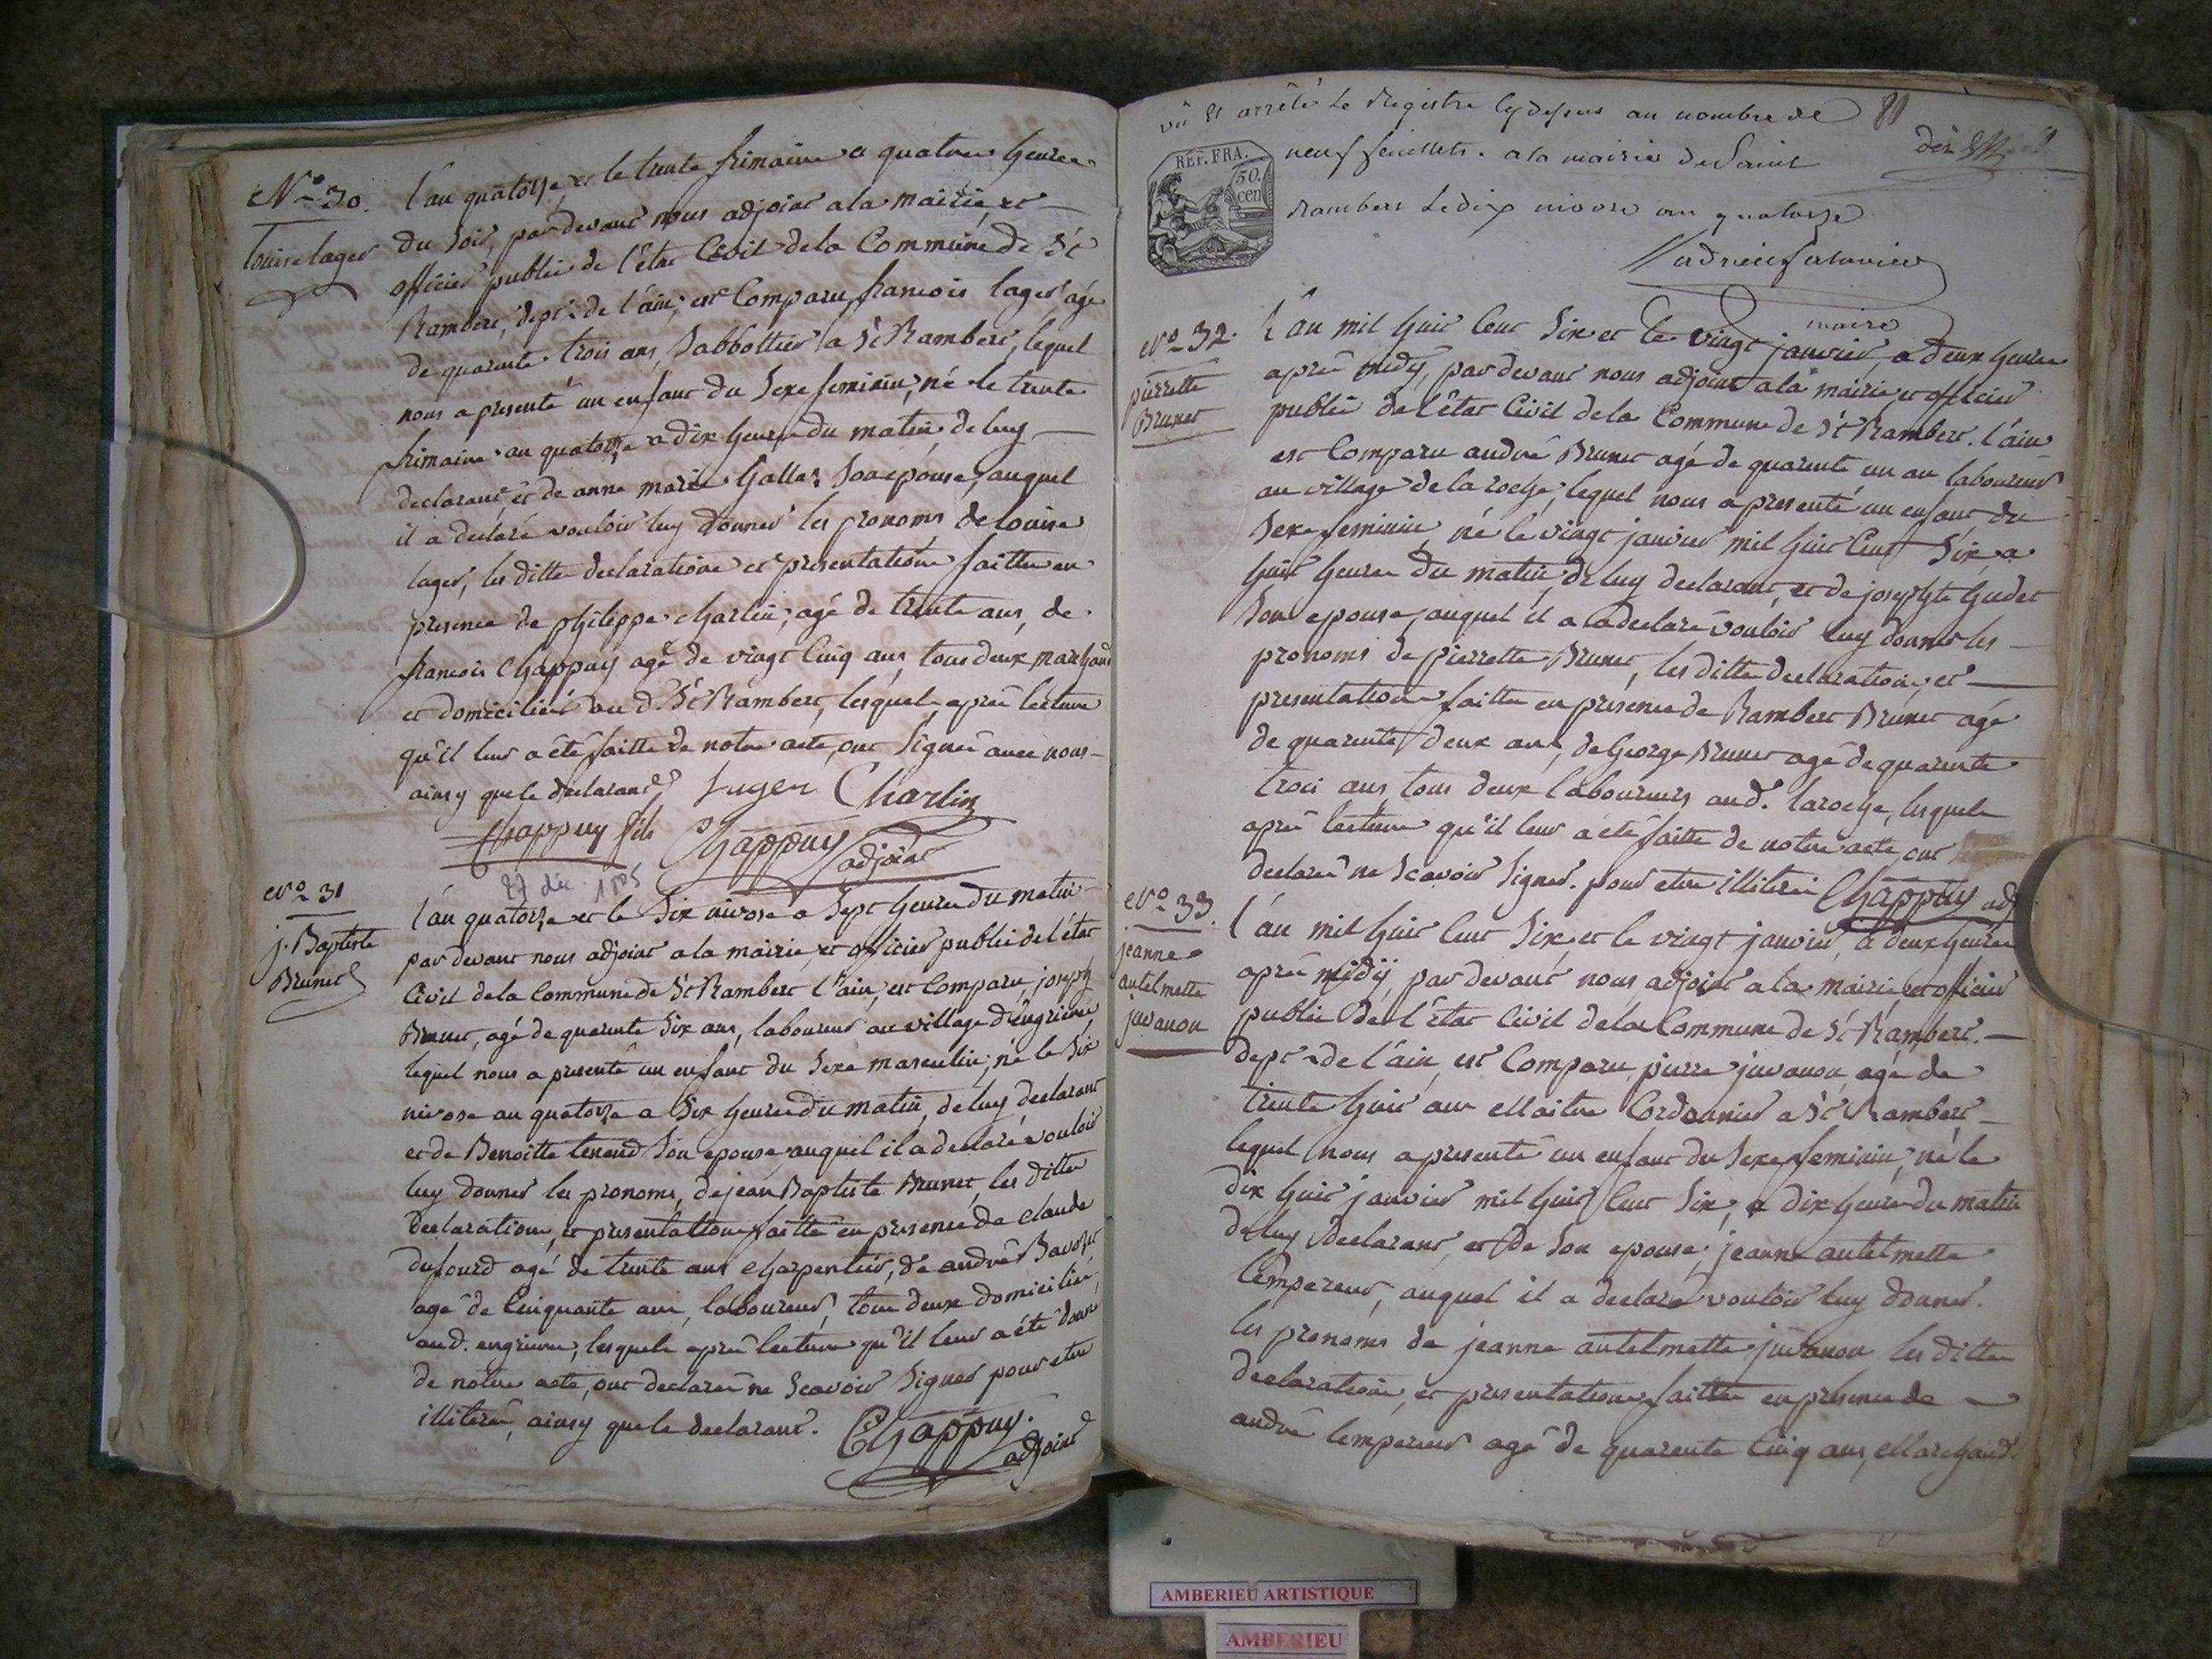 N.o 30.
Louise lager
L'an quatorze, et le trente frimaire a quatre heures
du soir, pardevant nous adjoint a la mairie, et
officier public de l'état Civil de la Commune de St
Rambert, dept. de l'ain, est Comparu francois lager agé
de quarente trois ans, Sabbottier a St Rambert, lequel
nous a presenté un enfant du Sexe feminin, né le trente
frimaire an quatorze a dix heures du matin, de luy
declarant, et de anne marie Gallet Son epouse, auquel
il a declaré vouloir luy donner les pronoms de louise
lager, les dittes declarations et presentations faittes en
presence de philippe charlin, agé de trente ans, de
francois Chappuy agé de vingt Cinq ans, tous deux marchands
et domiciliés au d. St Rambert, lesquels après lecture
qu'il leur a été faitte de notre acte, ont Signés avec nous
ainsy que le declarant. Luger Charlin
Chappuy fils Chappuy adjoint
27 déc 1805
N.o 31
j. Baptiste
Brunet
L'an quatorze et le Six nivose a Sept heures du matin
pardevant nous adjoint a la mairie, et officier public de l'état
Civil de la Commune de St Rambert l'ain, est Comparu, joseph
Brunet, agé de quarente Six ans, laboureur au village d'engrieux
lequel nous a presenté un enfant du Sexe masculin, né le Six
nivose an quatorze a Six heures du matin, de luy declarant
et de Benoitte tenand Son epouse, auquel il a declaré vouloir
luy donner les pronoms, de jean Baptiste Brunet, les dittes
declarations, et presentations faittes en presence de claude
dufourd agé de trente ans charpentier, de andré Ravozet
agé de Cinquante ans, laboureur, tous deux domiciliés
aud. engrieux, lesquels après lecture qu'il leur a été donné
de notre acte, ont declarés ne Scavoir Signer pour etre
illiterés, ainsy que le declarant. Chappuy.
adjoint
vû et arrêté Le Registre Cydessus au nombre de 80
neuf feuillets. a la mairie de Saint
Rambert Le dix nivose an quatorze
maire
REP. FRA.
50.
cen
N.o 32.
pierrette
Brunet
L'an mil huit Cent Six et le vingt janvier, a deux heures
après midy, pardevant nous adjoint a la mairie et officier
public de l'état Civil de la Commune de St Rambert. l'ain
est Comparu andré Brunet agé de quarente un an laboureur
au village de la roche, lequel nous a presenté un enfant du
Sexe feminin, né le vingt janvier mil huit Cent Six, a
huit heures du matin, de luy declarant, et de josephte Gudet
Son epouse, auquel il a declaré vouloir luy donner les
pronoms de pierrette Brunet, les dittes declarations, et
presentations faittes en presence de Rambert Brunet agé
de quarente deux ans, de George Brunet agé de quarente
trois ans tous deux laboureurs aud. laroche, lesquels
après lecture qu'il leur a été faitte de notre acte, ont
declarés ne Scavoir Signer. pour etre illiterés Chappuy adj
N.o 33.
jeanne
antelmette
juvanon
L'an mil huit Cent Six, et le vingt janvier, a deux heures
après midy, pardevant nous adjoint a la mairie, et officier
public de l'état Civil de la Commune de St Rambert.
dept. de l'ain, est Comparu pierre juvanon, agé de
trente huit ans Maitre Cordonnier a St Rambert
lequel nous a presenté un enfant du Sexe feminin, né le
dix huit janvier mil huit Cent Six, a dix heures du matin
de luy declarant, et de Son epouse, jeanne antelmette
Lempereur, auquel il a declaré vouloir luy donner.
les pronoms de jeanne antelmette juvanon les dittes
declarations, et presentations faittes en presence de
andré lempereur agé de quarente Cinq ans, Marchand.
AMBERIEU ARTISTIQUE
AMBERIEU